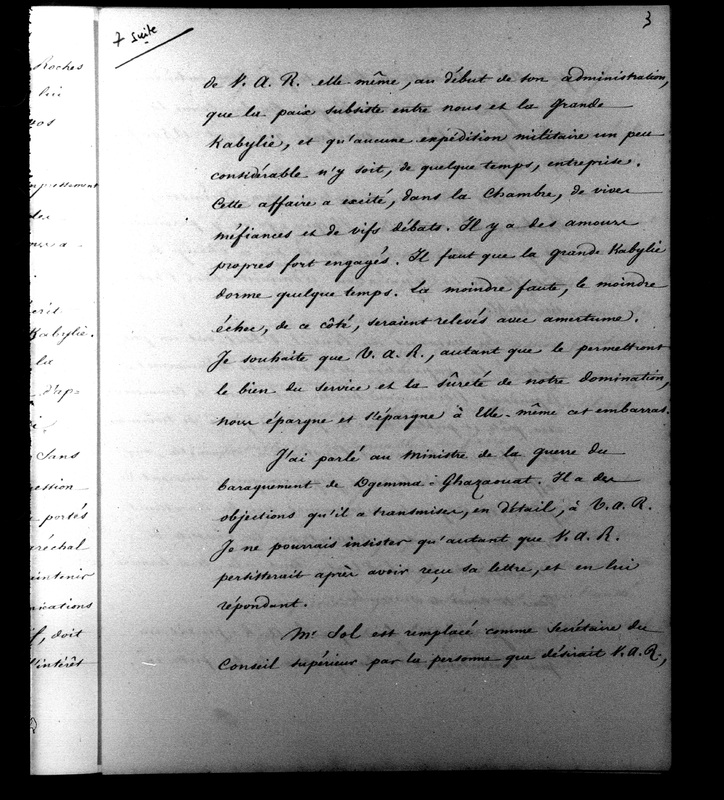 7 Suite
3
de V. A. R. elle même, au début de son administration,
que la paix subsiste entre nous et la grande
Kabylie, et qu'aucune expédition militaire un peu
considérable n'y soit, de quelque temps, entreprise.
Cette affaire a excité, dans la Chambre, de vives
méfiances et de vifs débats. Il y a des amours
propres fort engagés. Il faut que la grande Kabylie
dorme quelque temps. La moindre faute, le moindre
échec, de ce côté, seraient relevés avec amertume.
Je souhaite que V. A. R., autant que le permettront
le bien du service et la sûreté de notre domination,
nous épargne et s'épargne à Elle-même cet embarras.
J'ai parlé au Ministre de la guerre du
baraquement de Dgemma-Ghazaouat. Il a des
objections qu'il a transmises, en détail, à V. A. R.
Je ne pourrais insister qu'autant que V. A. R.
persisterait après avoir reçu sa lettre, et en lui
répondant.
Mr Sol est remplacé comme Secrétaire du
Conseil supérieur par la personne que désirait V. A. R.,
Roches
lui
vos
mpressement
des
erit
Kabylie.
la
Sans
gestion
portés
aréchal
maintenir
nications
f, doit
l'intérêt